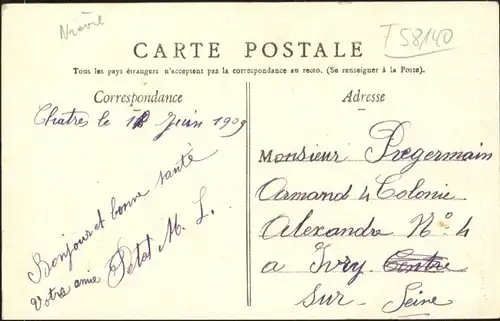 Nièvre
T58/140
CARTE POSTALE
Tous les pays étrangers n'acceptent pas la correspondance au recto. (Se renseigner à la Poste).
Correspondance
Chatres le 18 Juin 1909
Bonjour et bonne santé
Votre amie Petot M. L.
Adresse
Monsieur Pregermain
Armand 4 Colonie
Alexandre No 4
a Ivry Centre
sur- Seine